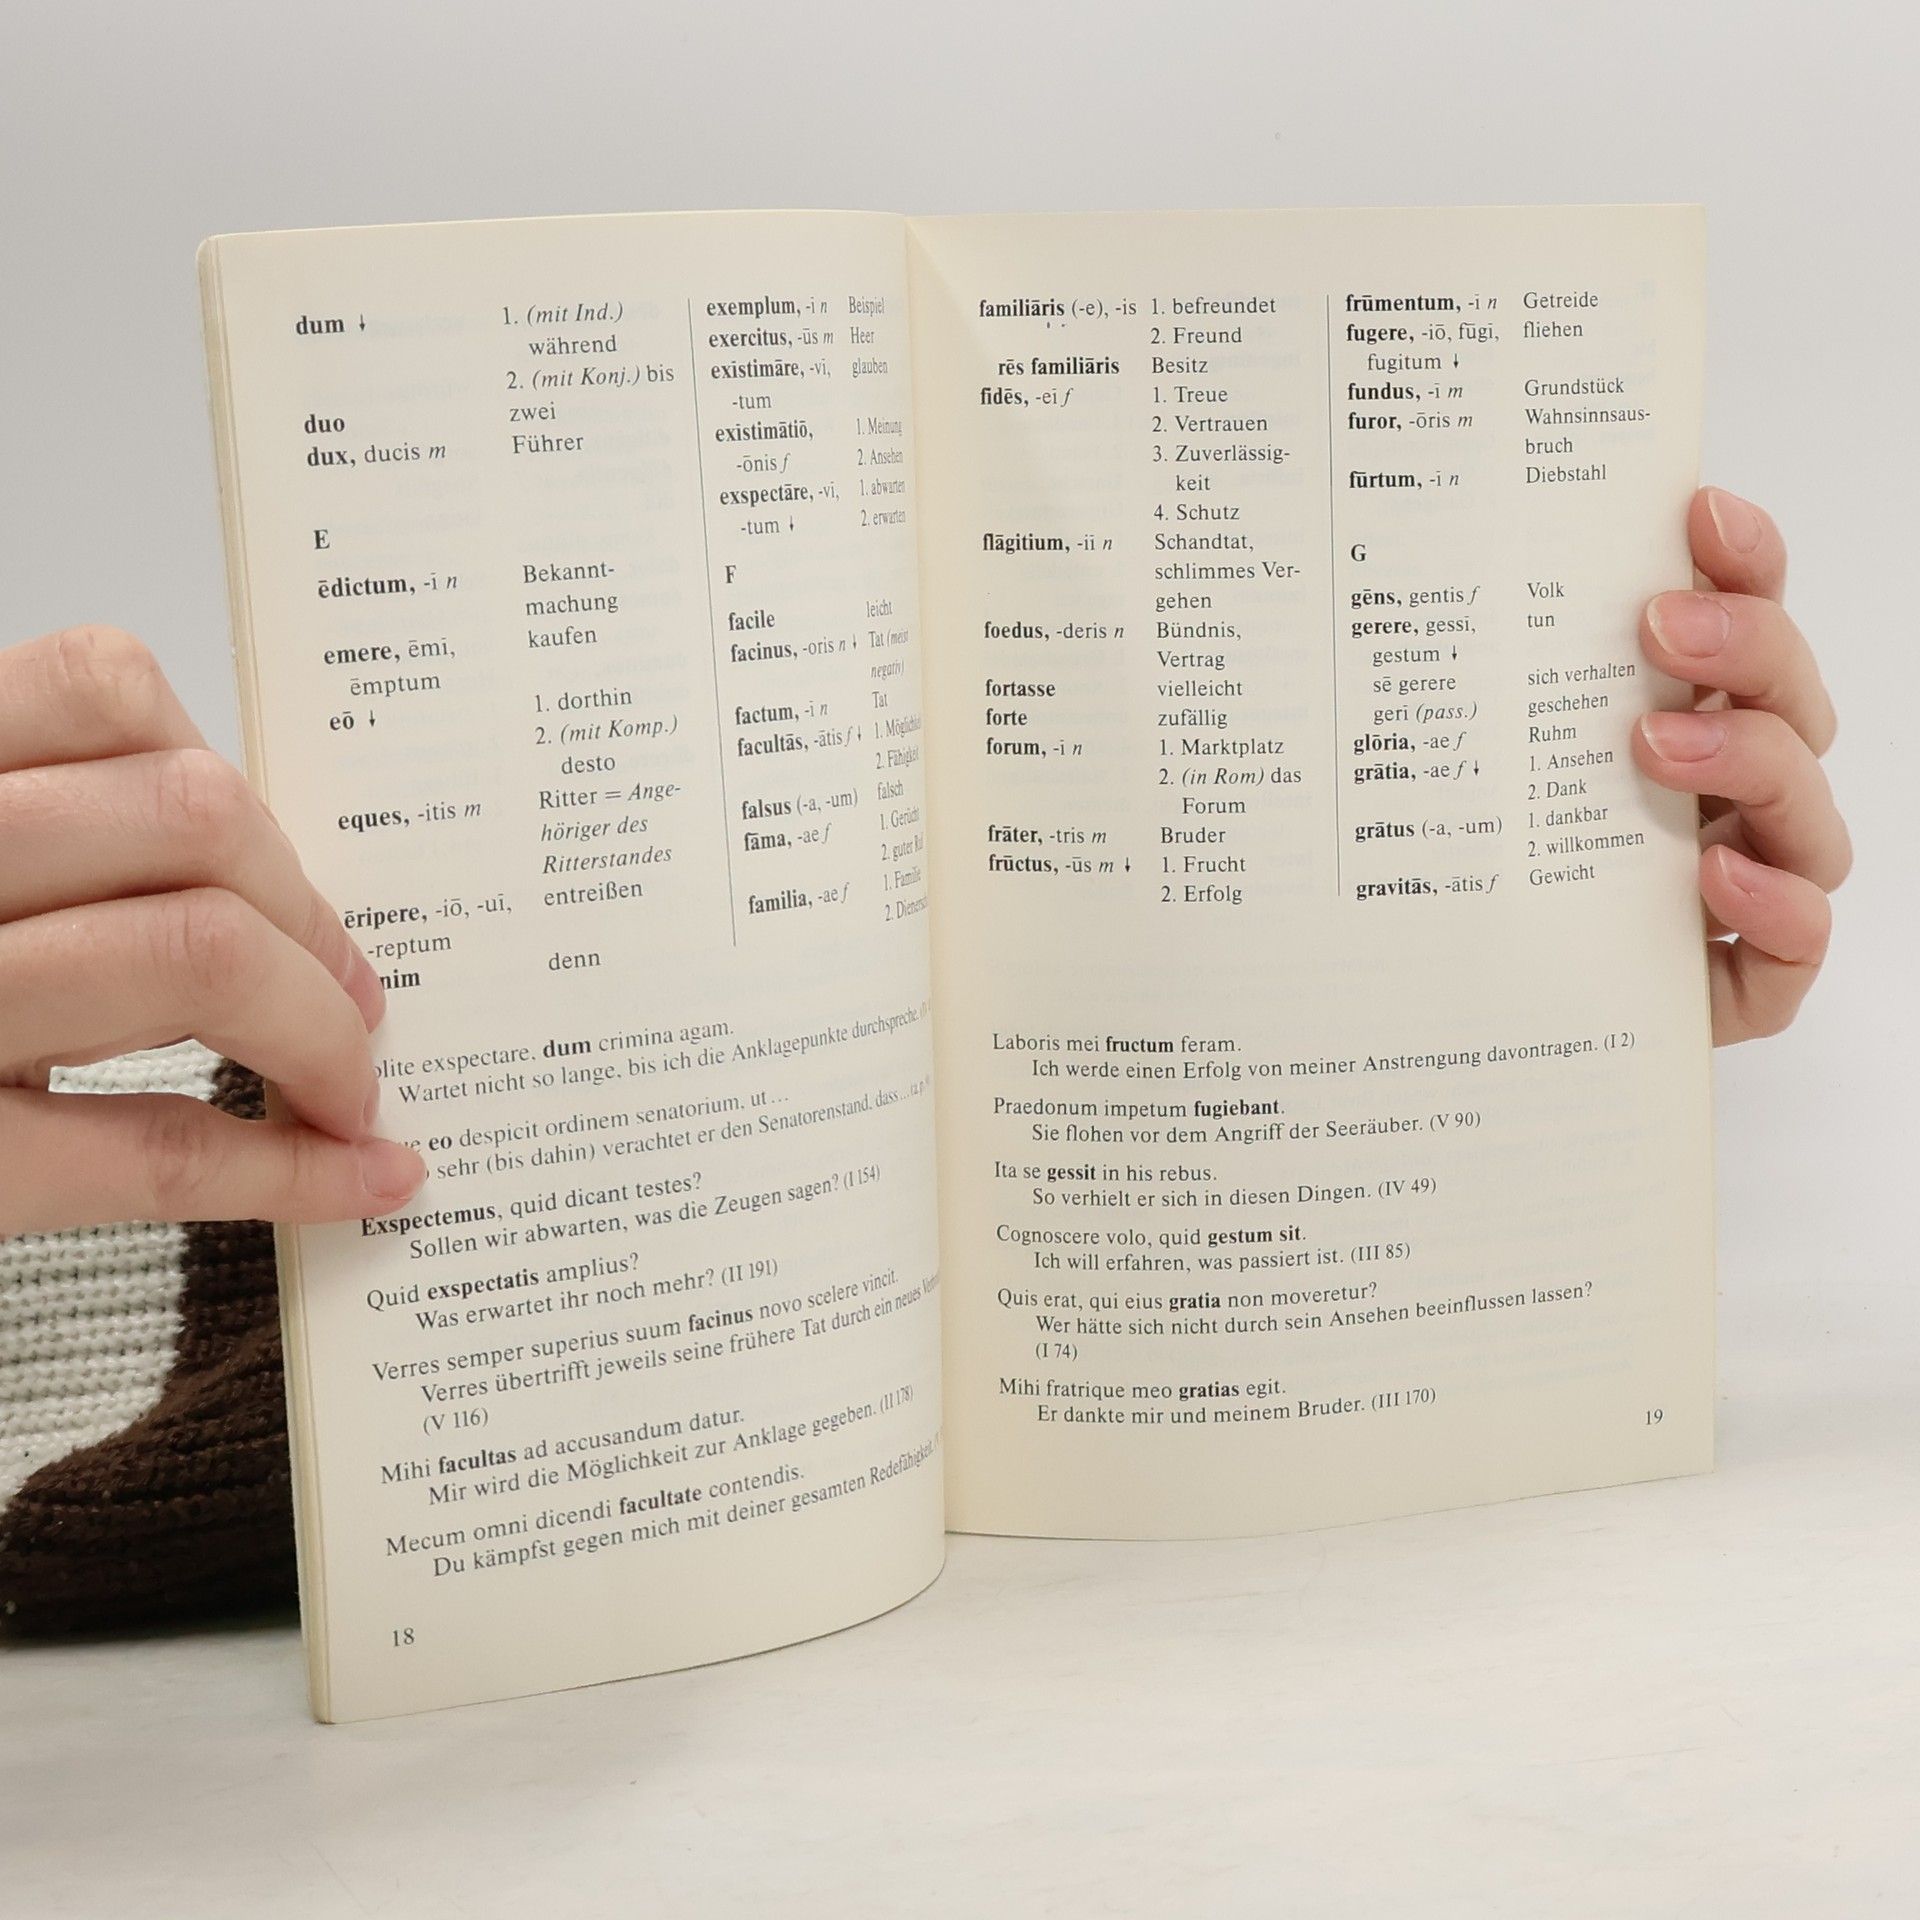 dum ↓ 1. (mit Ind.)
während
2. (mit Konj.) bis
duo zwei
dux, ducis m Führer
E
ēdictum, -ī n Bekannt-
machung
emere, ēmī, kaufen
ēmptum
eō ↓ 1. dorthin
2. (mit Komp.)
desto
eques, -itis m Ritter = Ange-
höriger des
Ritterstandes
ēripere, -iō, -uī, entreißen
-reptum
nim denn
exemplum, -ī n Beispiel
exercitus, -ūs m Heer
exīstimāre, -vī, glauben
-tum
exīstimātiō, 1. Meinung
-ōnis f 2. Ansehen
exspectāre, -vī, 1. abwarten
-tum ↓ 2. erwarten
F
facile leicht
facinus, -oris n ↓ Tat (meist
negativ)
factum, -ī n Tat
facultās, -ātis f ↓ 1. Möglichkeit
2. Fähigkeit
falsus (-a, -um) falsch
fāma, -ae f 1. Gerücht
2. guter Ruf
familia, -ae f 1. Familie
2.
olite exspectare, dum crimina agam.
Wartet nicht so lange, bis ich die Anklagepunkte durchspreche.
eo despicit ordinem senatorium, ut ...
sehr (bis dahin) verachtet er den Senatorenstand, dass ...
Exspectemus, quid dicant testes?
Sollen wir abwarten, was die Zeugen sagen? (I 154)
Quid exspectatis amplius?
Was erwartet ihr noch mehr? (II 191)
Verres semper superius suum facinus novo scelere vincit.
Verres übertrifft jeweils seine frühere Tat durch ein neues
(V 116)
Mihi facultas ad accusandum datur.
Mir wird die Möglichkeit zur Anklage gegeben. (II 178)
Mecum omni dicendi facultate contendis.
Du kämpfst gegen mich mit deiner gesamten Redefähigkeit.
18
familiāris (-e), -is 1. befreundet
2. Freund
rēs familiāris Besitz
fidēs, -eī f 1. Treue
2. Vertrauen
3. Zuverlässig-
keit
4. Schutz
flāgitium, -iī n Schandtat,
schlimmes Ver-
gehen
foedus, -deris n Bündnis,
Vertrag
fortasse vielleicht
forte zufällig
forum, -ī n 1. Marktplatz
2. (in Rom) das
Forum
frāter, -tris m Bruder
frūctus, -ūs m ↓ 1. Frucht
2. Erfolg
frūmentum, -ī n Getreide
fugere, -iō, fūgī, fliehen
fugitum ↓
fundus, -ī m Grundstück
furor, -ōris m Wahnsinnsaus-
bruch
fūrtum, -ī n Diebstahl
G
gēns, gentis f Volk
gerere, gessī, tun
gestum ↓
sē gerere sich verhalten
gerī (pass.) geschehen
glōria, -ae f Ruhm
grātia, -ae f ↓ 1. Ansehen
2. Dank
grātus (-a, -um) 1. dankbar
2. willkommen
gravitās, -ātis f Gewicht
Laboris mei fructum feram.
Ich werde einen Erfolg von meiner Anstrengung davontragen. (I 2)
Praedonum impetum fugiebant.
Sie flohen vor dem Angriff der Seeräuber. (V 90)
Ita se gessit in his rebus.
So verhielt er sich in diesen Dingen. (IV 49)
Cognoscere volo, quid gestum sit.
Ich will erfahren, was passiert ist. (III 85)
Quis erat, qui eius gratia non moveretur?
Wer hätte sich nicht durch sein Ansehen beeinflussen lassen?
(I 74)
Mihi fratrique meo gratias egit.
Er dankte mir und meinem Bruder. (III 170)
19